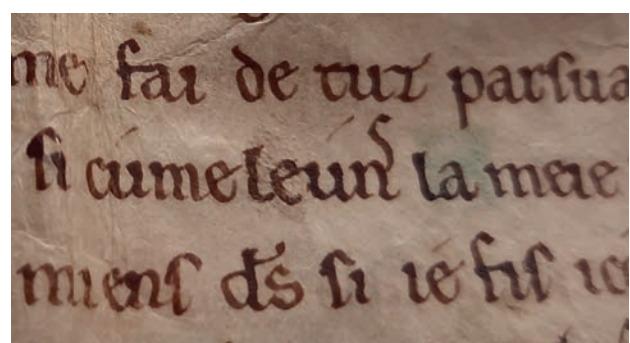 me fai de tut parsua
si cúme leúns la meie
miens ds si ié fis ice